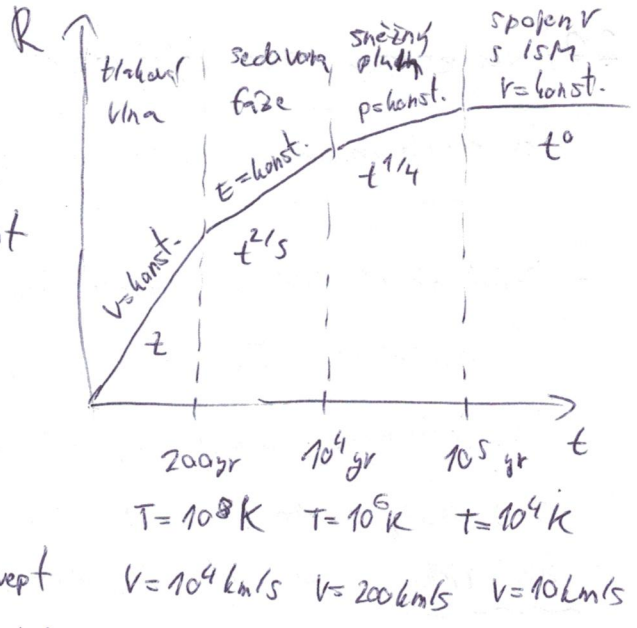 R
tlaková vlna
sedavova fáze
sněžný pluh
p=konst.
spojení
s ISM
r=konst.
v=konst.
t
E=konst.
t^2/5
t^1/4
t^0
200yr
10^4 yr
10^5 yr
t
T=10^8 K
T=10^6 K
t=10^4 K
V=10^4 km/s
V=200km/s
V=10km/s